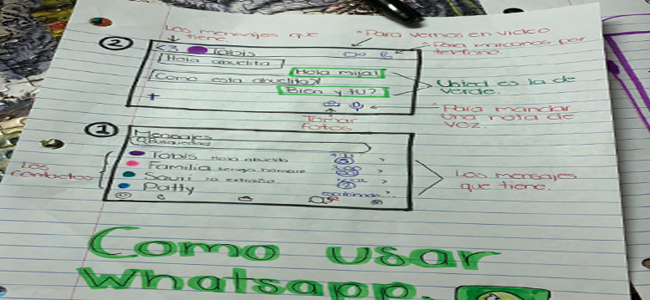 Los mensajes que tiene
Para vernos en video
Para marcarnos por telefono
2
<3 Tabis
Hola abuelita
Hola mija!
Como esta abuelita?
Bien y tu?
+
Usted es la de verde.
Tomar Fotos
Para mandar una nota de voz.
1
Mensajes
Tabis Hola abuelita >
Familia tengo hambre >
Sauri la extraño >
Patty >
Los contactos
Los mensajes que tiene.
Como usar
Whatsapp.